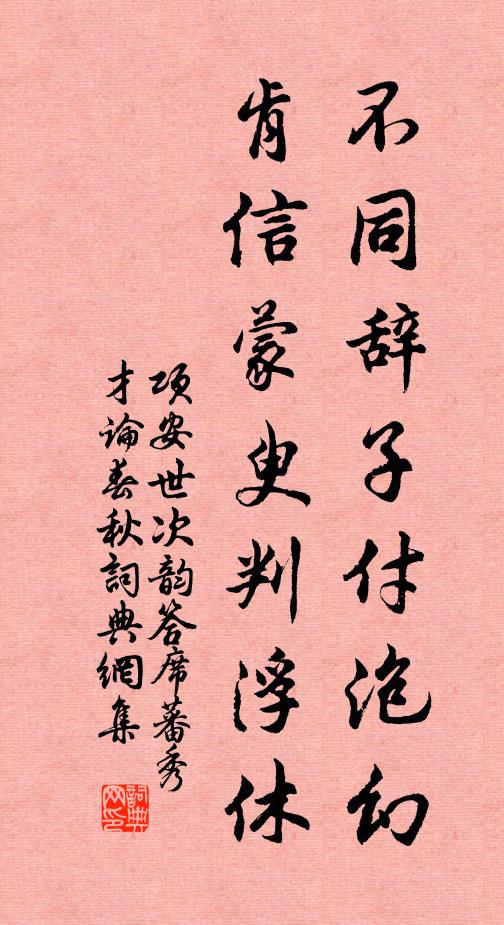 不同辞子付泡幻
肯信蒙叟判浮休
项安世次韵答席蕃秀
才论春秋詞典網集
詞典网印